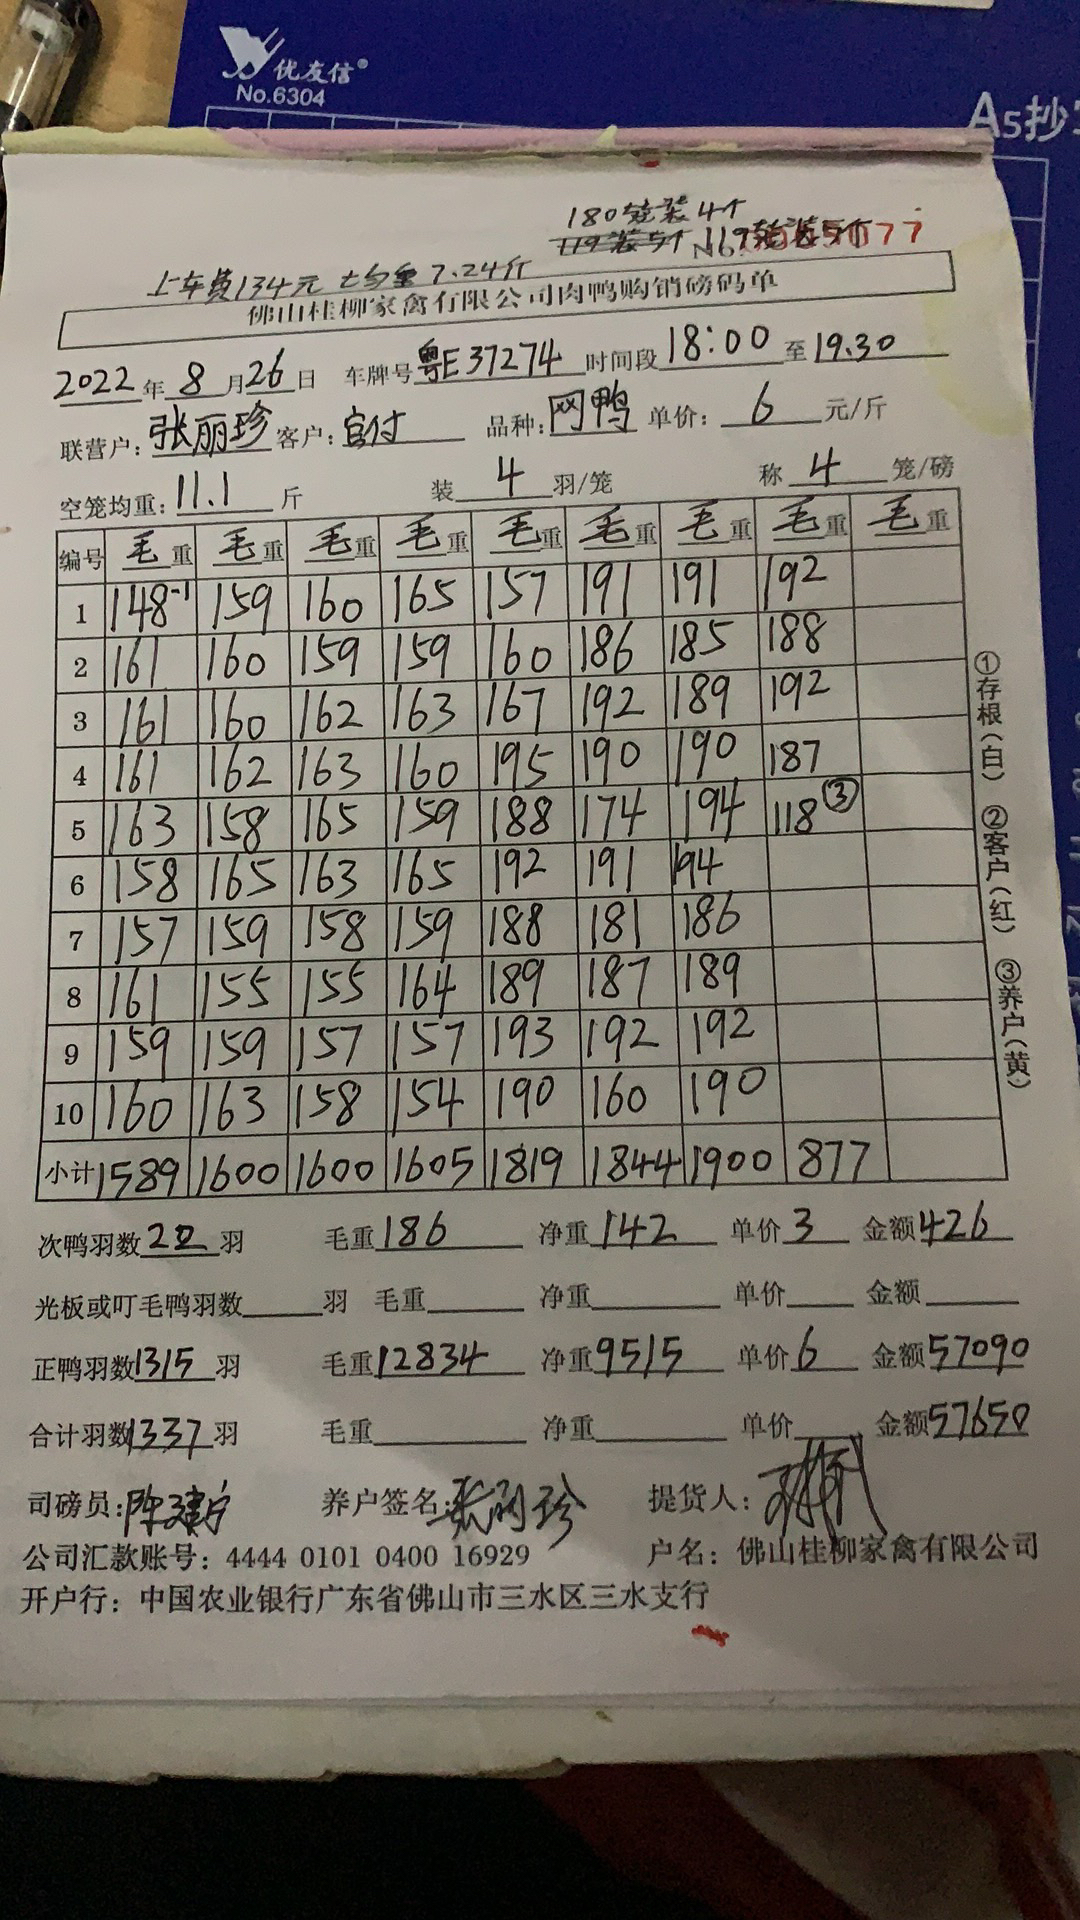 优友信®
No.6304
A5抄
180笼装4个
119装5个 119笼装5个
上车费134元 均重7.24斤
佛山桂柳家禽有限公司肉鸭购销磅码单
2022年8月26日 车牌号粤E37274 时间段18:00至19.30
联营户:张丽珍 客户:官付 品种:网鸭 单价:6元/斤
空笼均重:11.1斤 装4羽/笼 称4笼/磅
编号 毛重 毛重 毛重 毛重 毛重 毛重 毛重 毛重 毛重
1 148-1 159 160 165 157 191 191 192
2 161 160 159 159 160 186 185 188
3 161 160 162 163 167 192 189 192
4 161 162 163 160 195 190 190 187
5 163 158 165 159 188 174 194 118③
6 158 165 163 165 192 191 194
7 157 159 158 159 188 181 186
8 161 155 155 164 189 187 189
9 159 159 157 157 193 192 192
10 160 163 158 154 190 160 190
小计 1589 1600 1600 1605 1819 1844 1900 877
①存根(白) ②客户(红) ③养户(黄)
次鸭羽数22羽 毛重186 净重142 单价3 金额426
光板或叮毛鸭羽数 羽 毛重 净重 单价 金额
正鸭羽数1315羽 毛重12834 净重9515 单价6 金额57090
合计羽数1337羽 毛重 净重 单价 金额57650
司磅员:陈建宁 养户签名:张丽珍 提货人:
公司汇款账号:4444 0101 0400 16929 户名:佛山桂柳家禽有限公司
开户行:中国农业银行广东省佛山市三水区三水支行